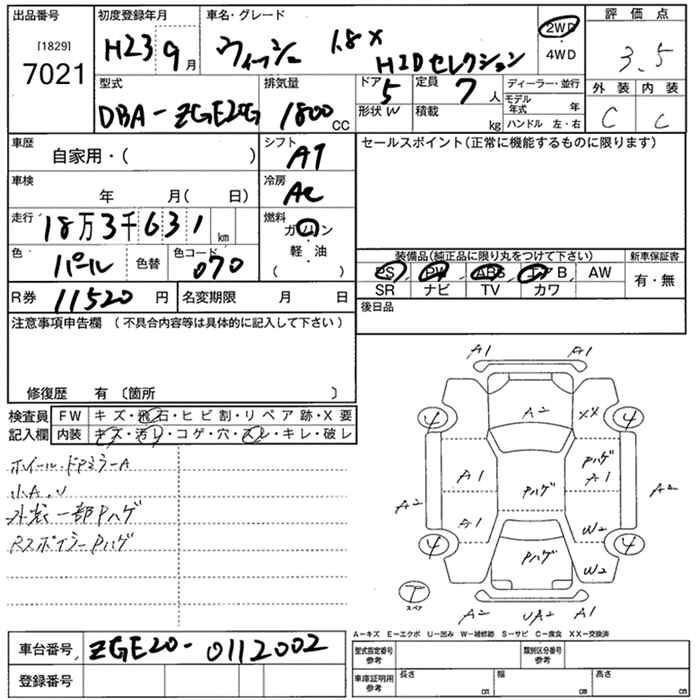 出品番号
[1829]
7021
初度登録年月
H23 9月
車名・グレード
ウィッシュ 1.8X HIDセレクション
2WD
4WD
評価点
3.5
外装 内装
C C
型式
DBA-ZGE20G
排気量
1800 CC
ドア 5
形状 W
定員 7 人
積載 kg
ディーラー・並行
モデル年式 年
ハンドル 左・右
車歴
自家用・( )
シフト
AT
セールスポイント(正常に機能するものに限ります)
車検
年 月( 日)
冷房
AC
走行
18万3千631 km
燃料
ガソリン
軽・油
( )
色
パール
色替
色コード
070
装備品(純正品に限り丸をつけて下さい)
PS PW ABS エアB AW
SR ナビ TV カワ
新車保証書
有・無
R券 11520 円
名変期限 月 日
後日品
注意事項申告欄 (不具合内容等は具体的に記入して下さい)
修復歴 有 〔箇所 〕
検査員記入欄
FW キズ・飛石・ヒビ割・リペア跡・X要
内装 キズ・汚れ・コゲ・穴・スレ・キレ・破レ
ホイール・ドアミラーA
小A.U
外装一部Pハゲ
Rスポイラーpハゲ
A1 A1
A2 XX
4 4
Pハゲ
A1 Pハゲ A1
A2 A2
A1 W2
4 4
Pハゲ W2
T
スペア
A2 UA2 A1
A−キズ E−エクボ U−凹み W−補修跡 S−サビ C−腐食 XX−交換済
車台番号 ZGE20-0112002
登録番号
型式指定番号 参考
類別区分番号 参考
車庫証明用 参考
長さ cm 幅 cm 高さ cm